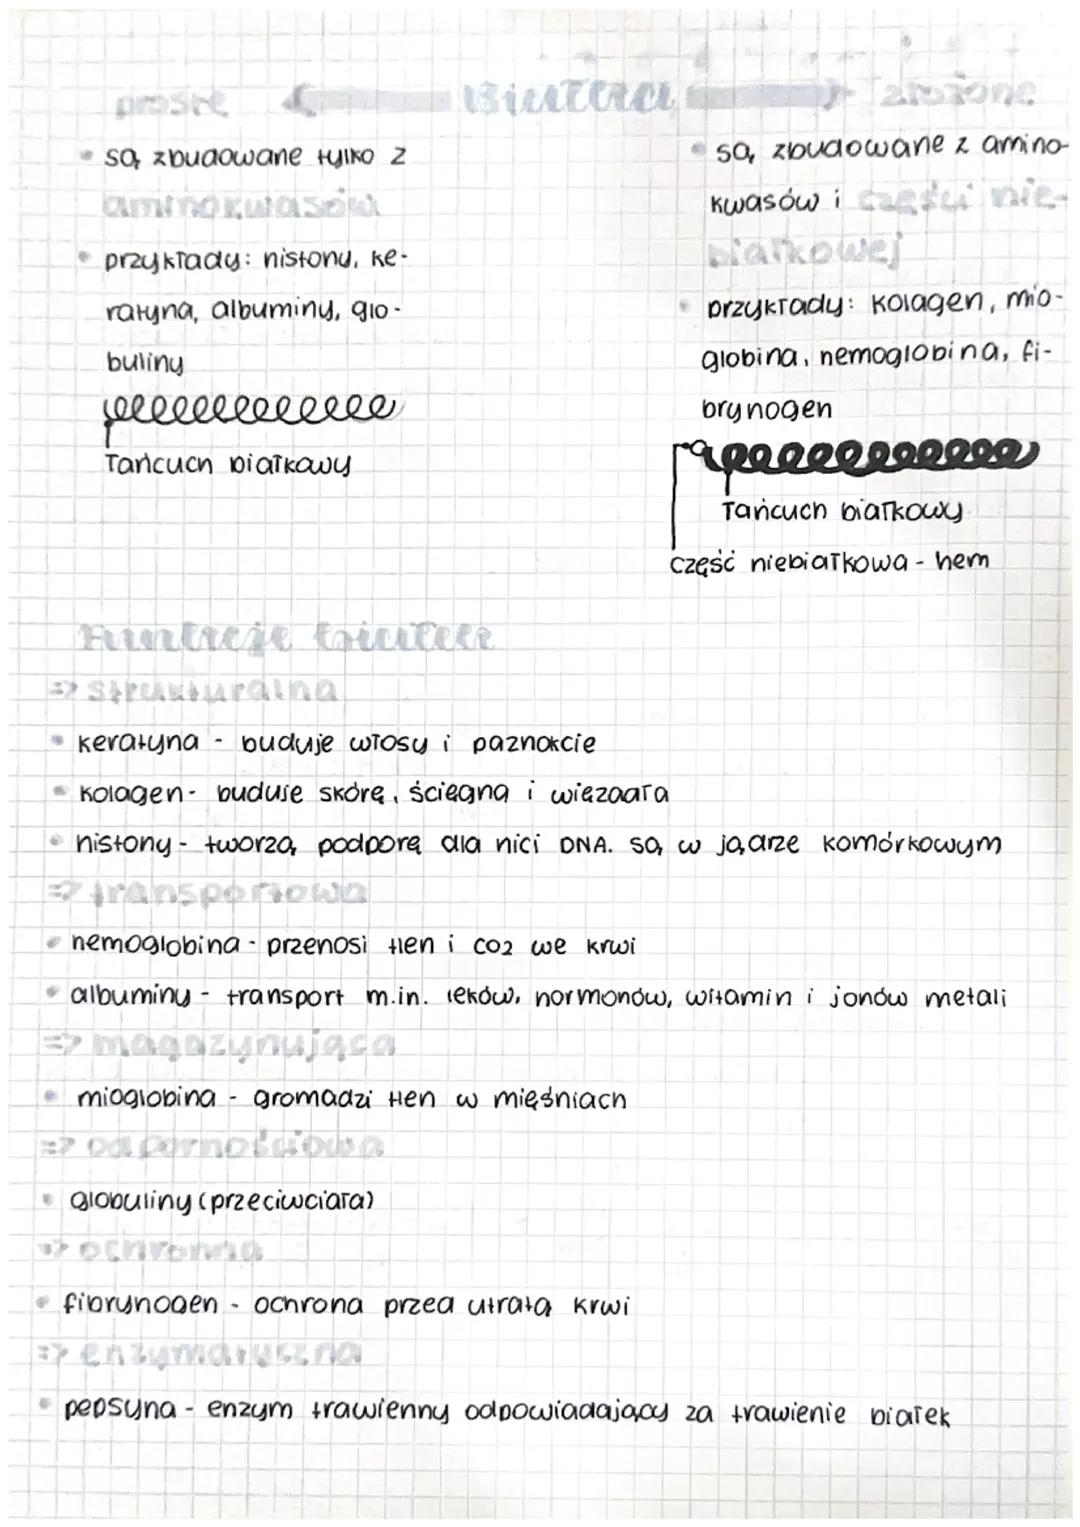 proste Białka złożone
są zbudowane tylko z
aminokwasów
przykłady: histony, ke-
ratyna, albuminy, glo-
buliny
łańcuch białkowy
są zbudowane z amino-
kwasów i części nie-
białkowej
przykłady: kolagen, mio-
globina, hemoglobina, fi-
brynogen
łańcuch białkowy
część niebiałkowa - hem
Funkcje białek
=> strukturalna
keratyna - buduje włosy i paznokcie
kolagen - buduje skórę, ścięgna i więzadła
histony - tworzą podporę dla nici DNA. są w jądrze komórkowym
=> transportowa
hemoglobina - przenosi tlen i CO2 we krwi
albuminy - transport m.in. leków, hormonów, witamin i jonów metali
=> magazynująca
mioglobina - gromadzi tlen w mięśniach
=> odpornościowa
globuliny (przeciwciała)
=> ochronna
fibrynogen - ochrona przed utratą krwi
=> enzymatyczna
pepsyna - enzym trawienny odpowiadający za trawienie białek